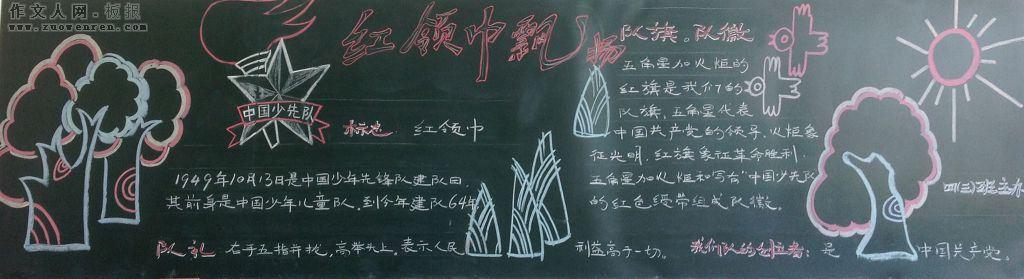 作文人网·板报
www.zuowenren.com
红领巾飘扬
中国少先队
标志 红领巾
1949年10月13日是中国少年先锋队建队日
其前身是中国少年儿童队.到今年建队64年
队礼 右手五指并拢,高举头上.表示人民
利益高于一切。
队旗。队徽
五角星加火炬的
红旗是我们的
队旗,五角星代表
中国共产党的领导,火炬象
征光明,红旗象征革命胜利.
五角星加火炬和写有"中国少先队
的红色绶带组成队徽。
我们队的创立者:是 中国共产党。
四(三)班主办